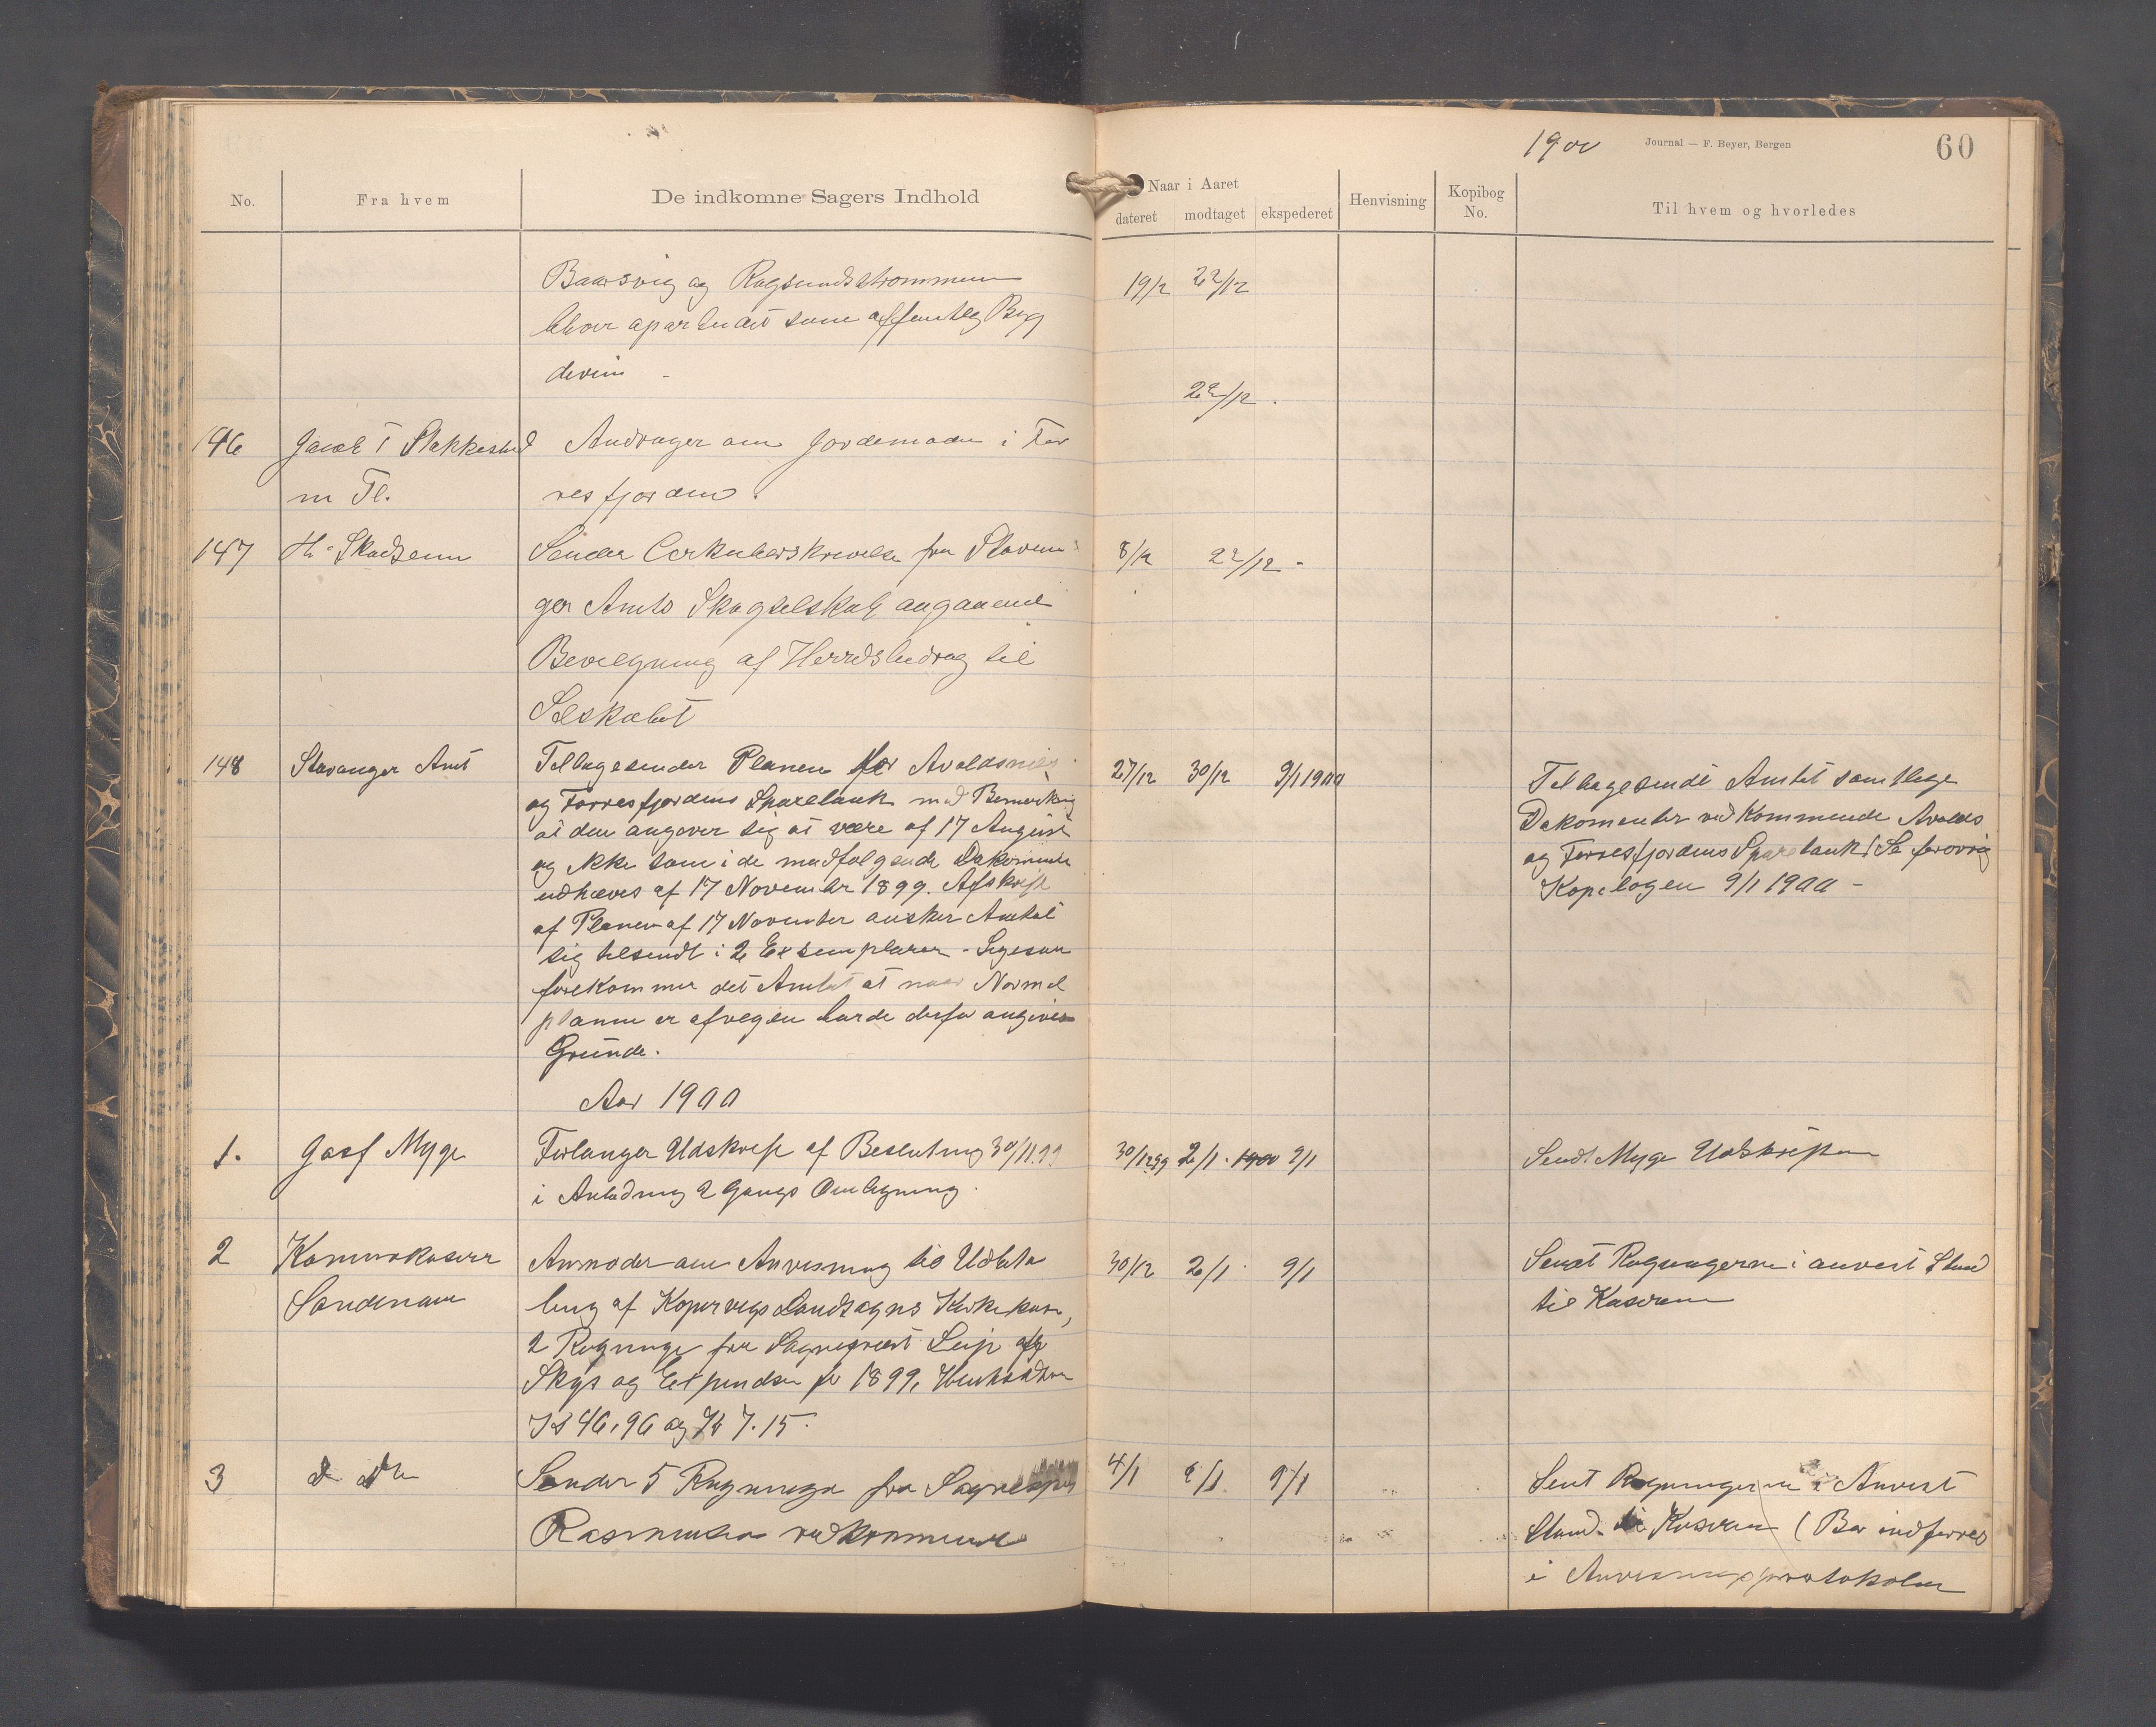 1900
Journal — F. Beyer, Bergen
60
No.
Fra hvem
De indkomne Sagers Indhold
Naar i Aaret
dateret
modtaget
ekspederet
Henvisning
Kopibog
No.
Til hvem og hvorledes
og
19/12 22/12
som offentlig Byg
22/12.
146 Jacob T Stakkestad Andrager om Jordemoder i For
m Fl. resfjorden.
147 Sender Cirkulærskrivelse fra Stavan 8/12 22/12 -
ger Amts Skogselskab angaaende
Bevilgning af Herredsbidrag til
Selskabet
148 Stavanger Amt Tilbagesender Planen for Avaldsnes 27/12 30/12 9/1 1900 Tilbagesendt Amtet samtlige
og Førresfjordens Sparebank med Bemerkng Dokomenter vedkommende Avalds
at den angiver sig at være af 17 August og Førresfjordens Sparebank (Se forøvrig
og ikke som i de medfølgende Dokominte Kopibogen 9/1 1900 -
udhæves af 17 November 1899. Afskrift
af Planen af 17 November ønsker Amtet
sig tilsendt i 2 Exsemplarer - Ligesom
forekommer det Amtet at naar Normal
planen er afvegen burde derfor angives
Grunde.
Aar 1900
1. Myge Forlanger Udskrift af Beslutning 30/11.99 30/12 99 2/1. 1900 9/1 Sendt Myge Udskriften
i Anledning Omlægning.
2 Anmoder om Anvisning til Udbeta 30/12 2/1 9/1 Sendt Regningerne i anvist Stand
ling af Kopervigs Landsogns Kirkekasse, til Kassereren
2 Regninger fra Sogneprest
Skyds og for 1899,
Kr 46,96 og Kr 7.15.
3 Sender 5 Regninger fra 4/1 9/1 Sent Regningerne i Anvist
Rasmussen vedkommende Stand til Kassereren (Bør indføres
i Anvisningsprotokolen